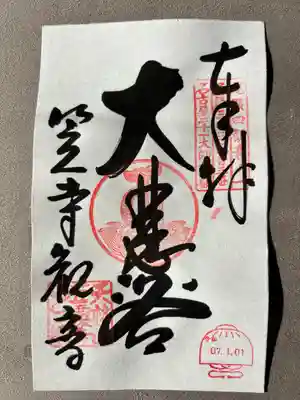 奉拝
大悲閣
笠寺観音
07.1.01